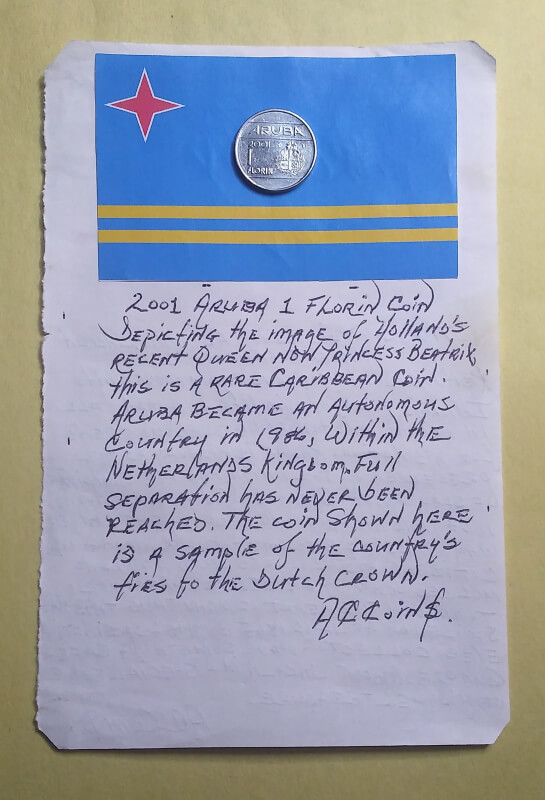 ARUBA
2001
1
FLORIN
2001 ARUBA 1 FLORIN COIN
DEPICTING THE IMAGE OF HOLLAND'S
RECENT QUEEN NOW PRINCESS BEATRIX,
THIS IS A RARE CARIBBEAN COIN.
ARUBA BECAME AN AUTONOMOUS
COUNTRY IN 1986, WITHIN THE
NETHERLANDS KINGDOM. FULL
SEPARATION HAS NEVER BEEN
REACHED. THE COIN SHOWN HERE
IS A SAMPLE OF THE COUNTRY'S
TIES TO THE DUTCH CROWN.
A₵₵oin$.